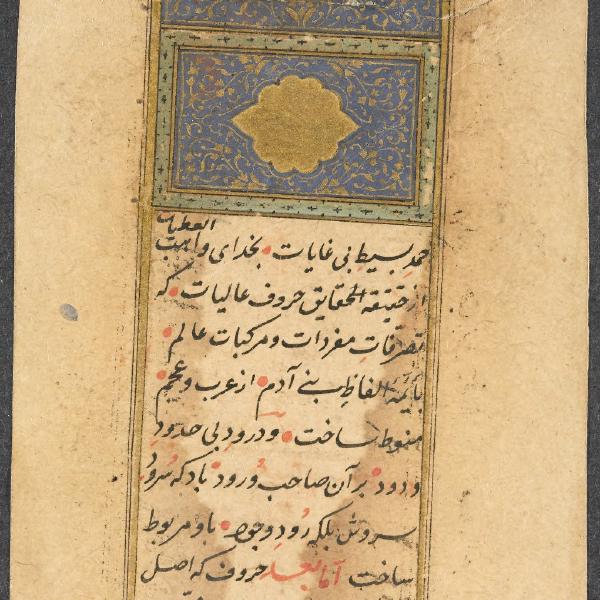 حمد بسیط بی غایات بخدای واهب العطیات
از حقیقة الحقایق حروف عالیات که
تصرفات مفردات و مرکبات عالم
الفاظ بنے آدم از عرب و عجم
منوط ساخت ودرود بی حدود
ودود برآن صاحب ورود باد که سرود
سروش بلکه رود وجود باو مربوط
ساخت اما بعد حروف که اصل